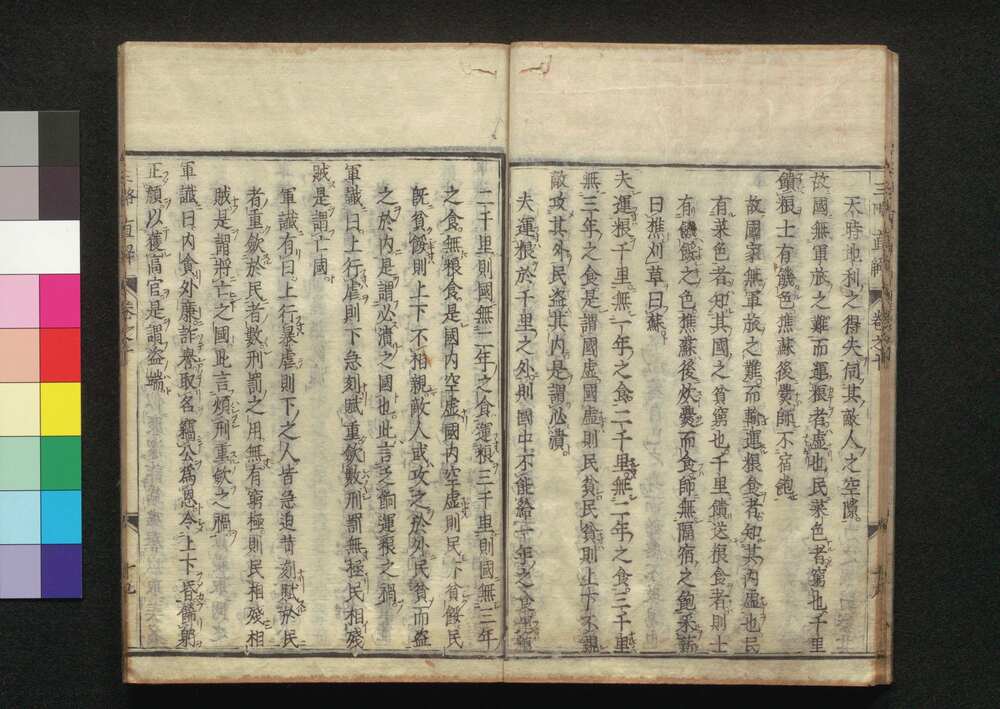 天時地利之得失伺其敵人之空隙
故國無軍旅之難而運粮者虛也民菜色者窮也千里
饋粮士有飢色樵蘇後爨師不宿飽
故國家無軍旅之難而輸運粮食者知其內虛也民
有菜色者知其國之貧窮也千里饋送粮食者則士
有饑餒之色樵蘇後炊爨而食師無隔宿之飽采薪
曰樵刈草曰蘇
夫運粮千里無一年之食二千里無二年之食三千里
無三年之食是謂國虛國虛則民貧民貧則上下不親
敵攻其外民盜其內是謂必潰
夫運粮於千里之外則國中不能給一年之食運粮
二千里則國無二年之食運粮三千里則國無三年
之食無粮食是國內空虛國內空虛則民下貧餒民
既貧餒則上下不相親敵人或攻之於外民貧而盜
之於內是謂必潰之國也此言乏餉運粮之禍
軍讖曰上行虐則下急刻賦重歛數刑罰無極民相殘
賊是謂亡國
軍讖有曰上行暴虐則下之人皆急迫苛刻賦於民
者重歛於民者數刑罰之用無有窮極則民相殘相
賊是謂將亡之國此言煩刑重歛之禍
軍讖曰內貪外廉詐譽取名竊公為恩令上下昏飾躬
正顏以獲高官是謂盜端
三略直解
卷之十
十九